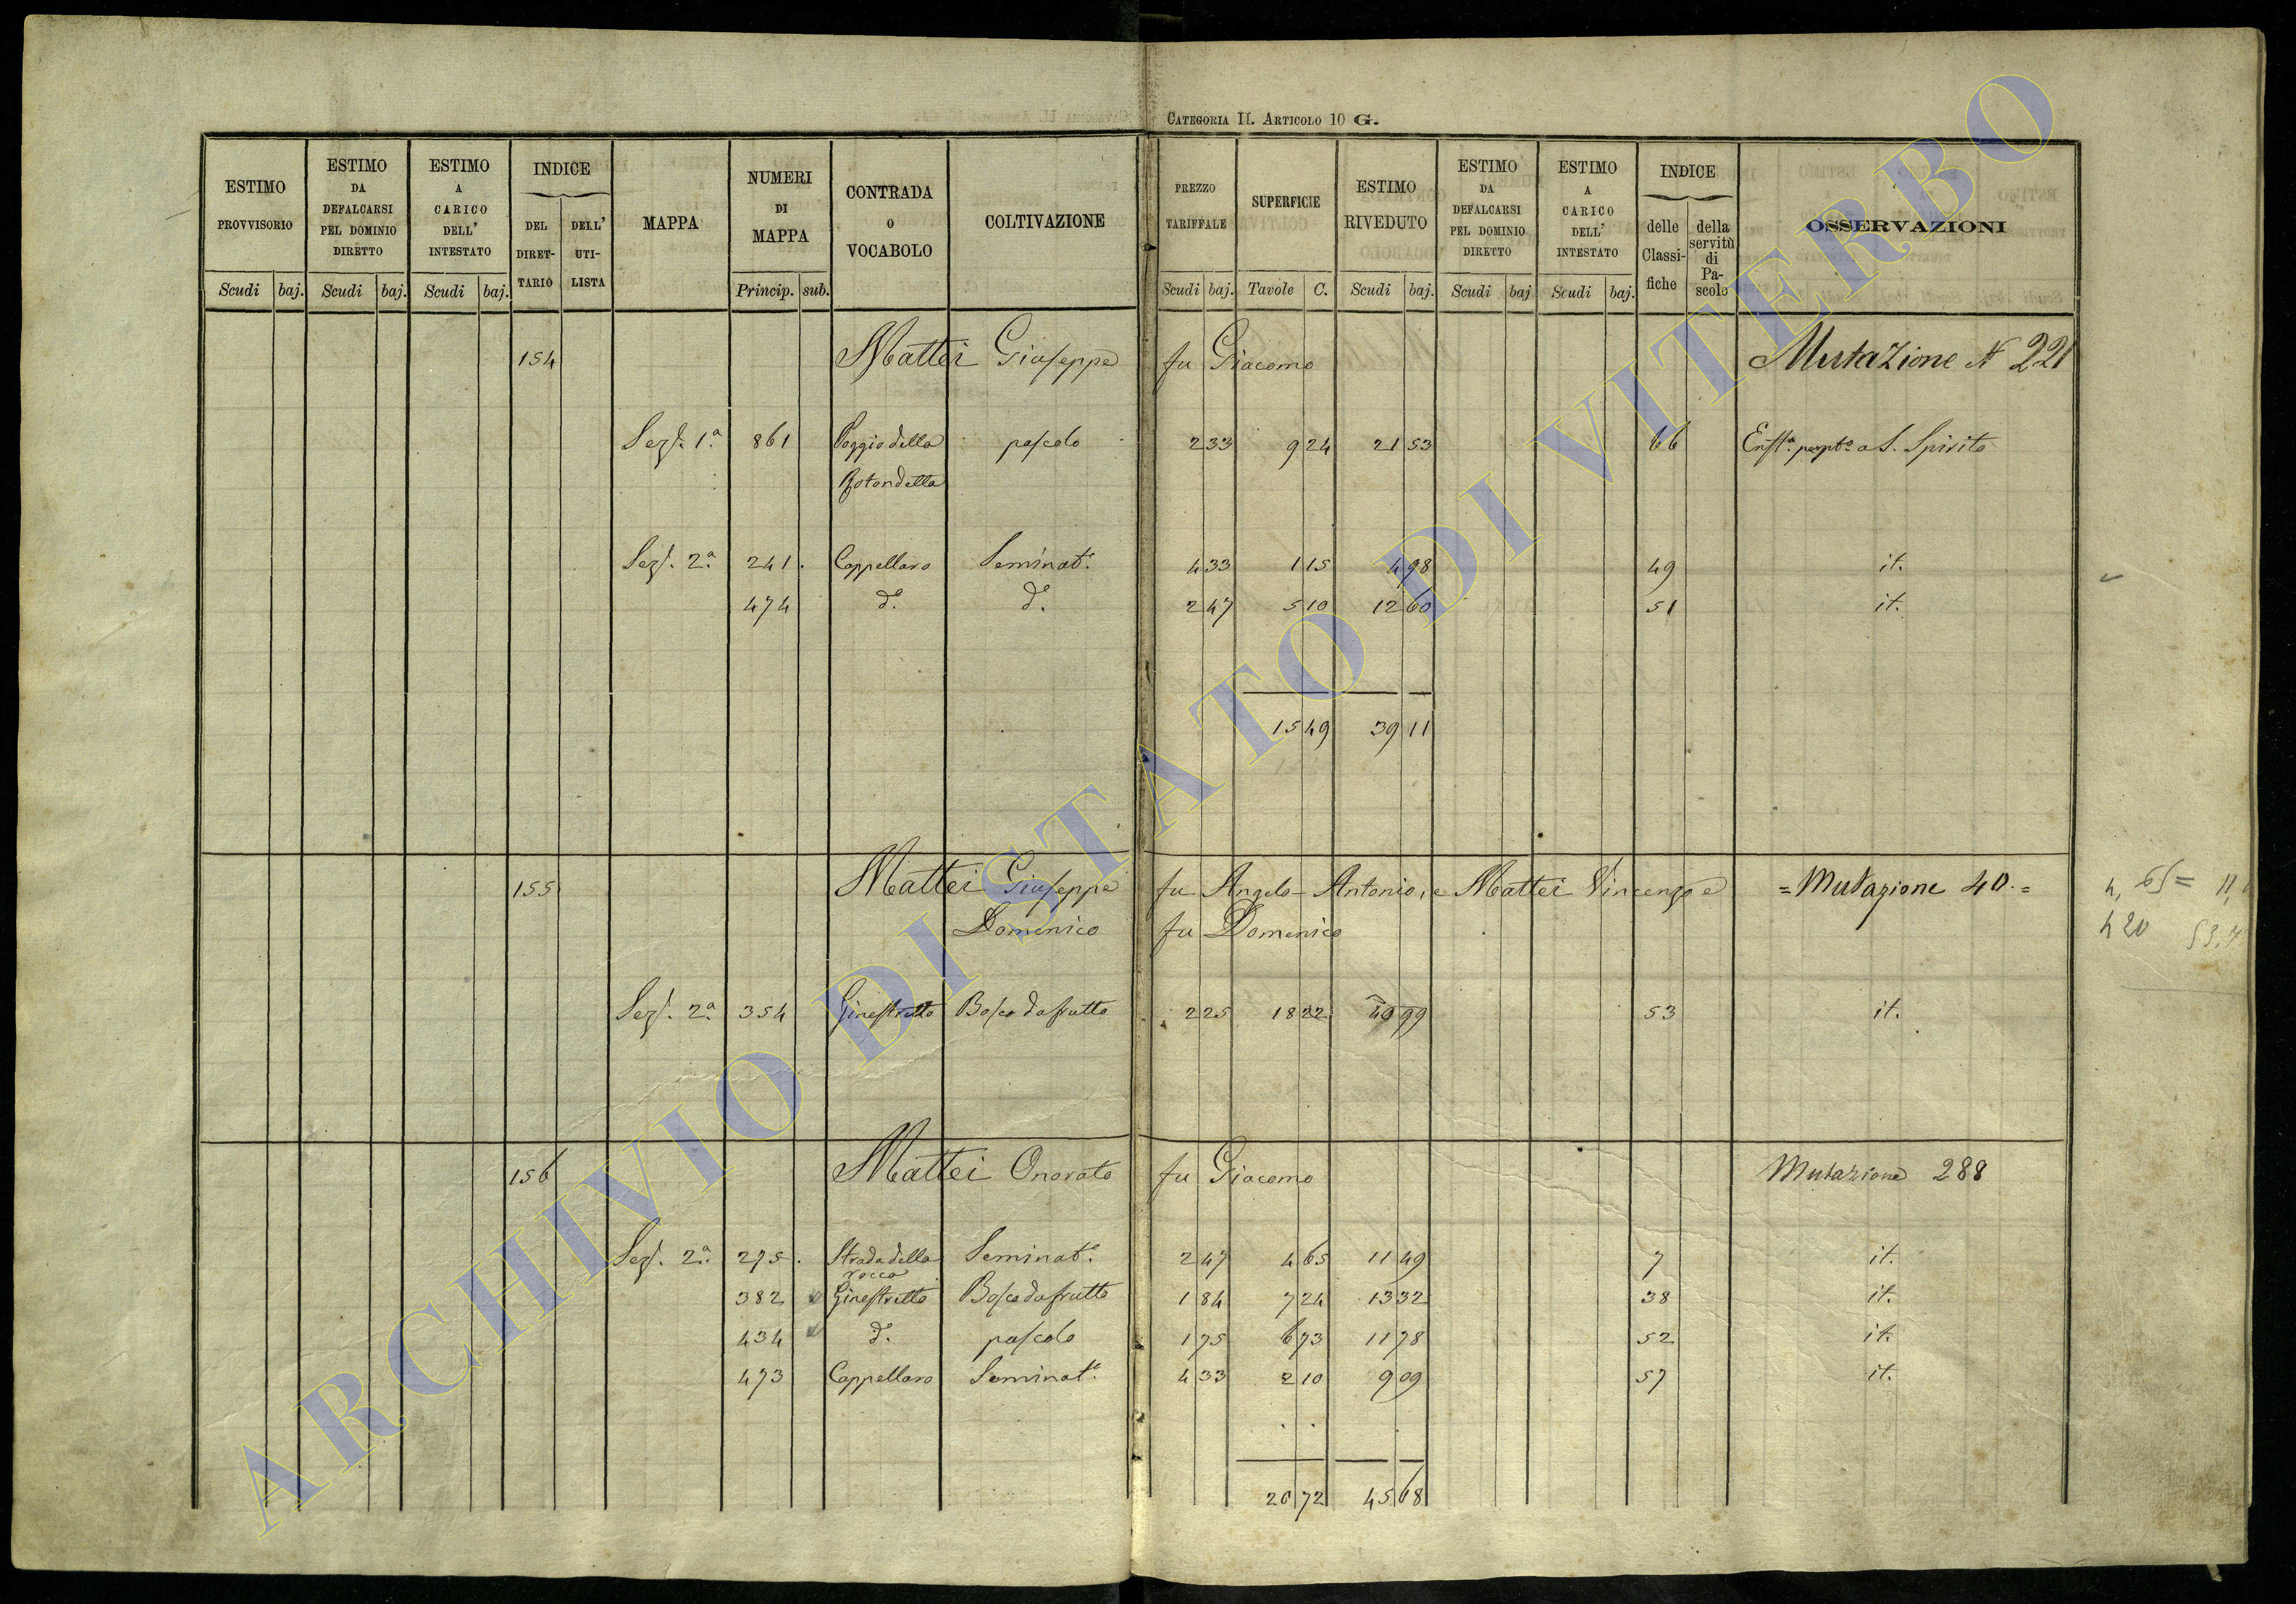 CATEGORIA II. ARTICOLO 10 G.
ESTIMO PROVVISORIO Scudi baj.
ESTIMO DA DEFALCARSI PEL DOMINIO DIRETTO Scudi baj.
ESTIMO A CARICO DELL' INTESTATO Scudi baj.
INDICE DEL DIRET-TARIO DELL' UTI-LISTA
MAPPA
NUMERI DI MAPPA Princip. sub.
CONTRADA O VOCABOLO
COLTIVAZIONE
PREZZO TARIFFALE Scudi baj.
SUPERFICIE Tavole C.
ESTIMO RIVEDUTO Scudi baj.
ESTIMO DA DEFALCARSI PEL DOMINIO DIRETTO Scudi baj
ESTIMO A CARICO DELL' INTESTATO Scudi baj.
INDICE delle Classi-fiche della servitù di Pa-scolo
OSSERVAZIONI
154 Mattei Giuseppe fu Giacomo Mutazione N 221
Sezɛ. 1ª 861 Poggio della pascolo 2 33 9 24 21 53 66 Enftª perptª a S. Spirito
Rotondella
Sez. 2ª 241. Cappellaro Seminatº. 4 33 1 15 4 98 49 it.
474 dº. dº. 2 47 5 10 12 60 51 it.
15 49 39 11
155 Mattei Giuseppe fu Angelo-Antonio, e Mattei Vincenzo e = Mutazione 40. =
Domenico fu Domenico
Sez. 2ª 354 Ginestretto Bosco da frutto 2 25 18 22 40 99 53 it.
156 Mattei Onorato fu Giacomo Mutazione 288
Sez. 2ª 275. Strada della rocca Seminatº. 2 47 4 65 11 49 7 it.
382 Ginestretto Bosco da frutto 1 84 7 24 13 32 38 it.
434 dº. pascolo 1 75 6 73 11 78 52 it.
473 Cappellaro Seminatº. 4 33 2 10 9 09 57 it.
20 72 45 68
4, 65 =
420
ARCHIVIO DI STATO DI VITERBO